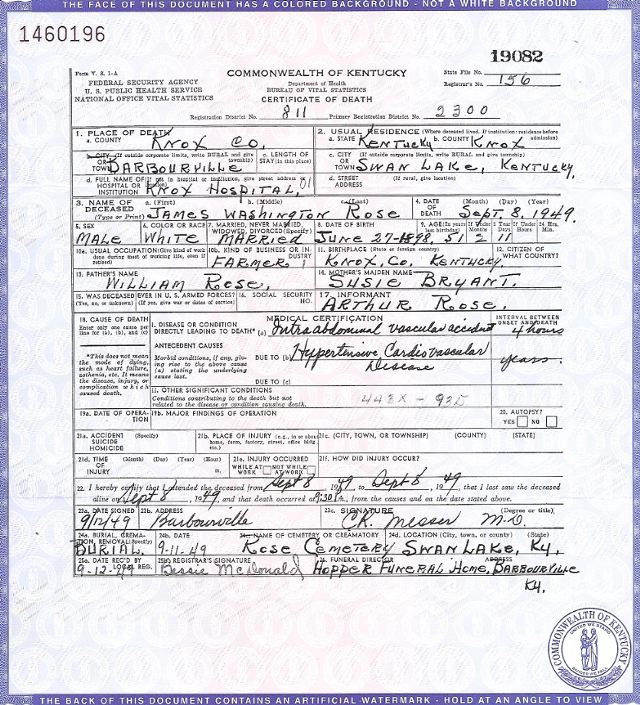 THE FACE OF THIS DOCUMENT HAS A COLORED BACKGROUND - NOT A WHITE BACKGROUND
1460196
19082
Form V. S. 1-A
FEDERAL SECURITY AGENCY
U. S. PUBLIC HEALTH SERVICE
NATIONAL OFFICE VITAL STATISTICS
COMMONWEALTH OF KENTUCKY
Department of Health
BUREAU OF VITAL STATISTICS
CERTIFICATE OF DEATH
State File No.
Registrar's No. 156
Registration District No. 811 Primary Registration District No. 2300
1. PLACE OF DEATH
a. COUNTY KNOX CO,
2. USUAL RESIDENCE (Where deceased lived. If institution: residence before admission)
a. STATE KENTUCKY b. COUNTY KNOX
b. CITY (If outside corporate limits, write RURAL and give township) OR TOWN BARBOURVILLE
c. LENGTH OF STAY (in this place)
c. CITY (If outside corporate limits, write RURAL and give township) OR TOWN SWAN LAKE, KENTUCKY,
d. FULL NAME OF (If not in hospital or institution, give street address or location) HOSPITAL OR INSTITUTION KNOX HOSPITAL, 01
d. STREET ADDRESS (If rural, give location)
3. NAME OF DECEASED (Type or Print) a. (First) b. (Middle) c. (Last)
JAMES WASHINGTON ROSE
4. DATE OF DEATH (Month) (Day) (Year)
SEPT. 8, 1949.
5. SEX MALE
6. COLOR OR RACE WHITE
7. MARRIED, NEVER MARRIED, WIDOWED, DIVORCED (Specify) MARRIED
8. DATE OF BIRTH JUNE 27-1898,
9. AGE (In years last birthday) 51 If Under 1 Year Months 2 Days 11 If Under 24 Hrs. Hours Min.
10a. USUAL OCCUPATION (Give kind of work done during most of working life, even if retired)
10b. KIND OF BUSINESS OR INDUSTRY
FARMER,
11. BIRTHPLACE (State or foreign country)
KNOX, CO, KENTUCKY.
12. CITIZEN OF WHAT COUNTRY?
13. FATHER'S NAME
WILLIAM ROSE,
14. MOTHER'S MAIDEN NAME
SUSIE BRYANT.
15. WAS DECEASED EVER IN U. S. ARMED FORCES?
(Yes, no, or unknown) (If yes, give war or dates of service)
16. SOCIAL SECURITY NO.
17. INFORMANT
ARTHUR ROSE.
18. CAUSE OF DEATH
Enter only one cause per line for (a), (b), and (c)
MEDICAL CERTIFICATION
INTERVAL BETWEEN ONSET AND DEATH
I. DISEASE OR CONDITION DIRECTLY LEADING TO DEATH* (a) Intra abdominal vascular accident 4 hours
*This does not mean the mode of dying, such as heart failure, asthenia, etc. It means the disease, injury, or complication which caused death.
ANTECEDENT CAUSES
Morbid conditions, if any, giving rise to the above cause (a) stating the underlying cause last.
DUE TO (b) Hypertensive Cardiovascular Disease years.
DUE TO (c)
II. OTHER SIGNIFICANT CONDITIONS
Conditions contributing to the death but not related to the disease or condition causing death.
443X - 92D
19a. DATE OF OPERATION
19b. MAJOR FINDINGS OF OPERATION
20. AUTOPSY?
YES NO
21a. ACCIDENT SUICIDE HOMICIDE (Specify)
21b. PLACE OF INJURY (e.g., in or about home, farm, factory, street, office bldg., etc.)
21c. (CITY, TOWN, OR TOWNSHIP) (COUNTY) (STATE)
21d. TIME OF INJURY (Month) (Day) (Year) (Hour) m.
21e. INJURY OCCURRED
WHILE AT WORK NOT WHILE AT WORK
21f. HOW DID INJURY OCCUR?
22. I hereby certify that I attended the deceased from Sept 8, 1949 to Sept 8, 1949, that I last saw the deceased
alive on Sept 8, 1949, and that death occurred at 9:30 m., from the causes and on the date stated above.
23a. DATE SIGNED 9/12/49
23b. ADDRESS Barbourville
23c. SIGNATURE (Degree or title)
C.R. Messer M.D.
24a. BURIAL, CREMATION, REMOVAL? (Specify) BURIAL
24b. DATE 9-11-49
24c. NAME OF CEMETERY OR CREMATORY
ROSE CEMETERY
24d. LOCATION (City, town, or county) (State)
SWAN LAKE, KY,
25a. DATE REC'D BY LOCAL REG. 9-12-49
25b. REGISTRAR'S SIGNATURE
Bessie McDonald
FUNERAL DIRECTOR ADDRESS
HOPPER FUNERAL HOME, BARBOURVILLE
KY.
COMMONWEALTH OF KENTUCKY
UNITED WE STAND
DIVIDED WE FALL
THE BACK OF THIS DOCUMENT CONTAINS AN ARTIFICIAL WATERMARK - HOLD AT AN ANGLE TO VIEW